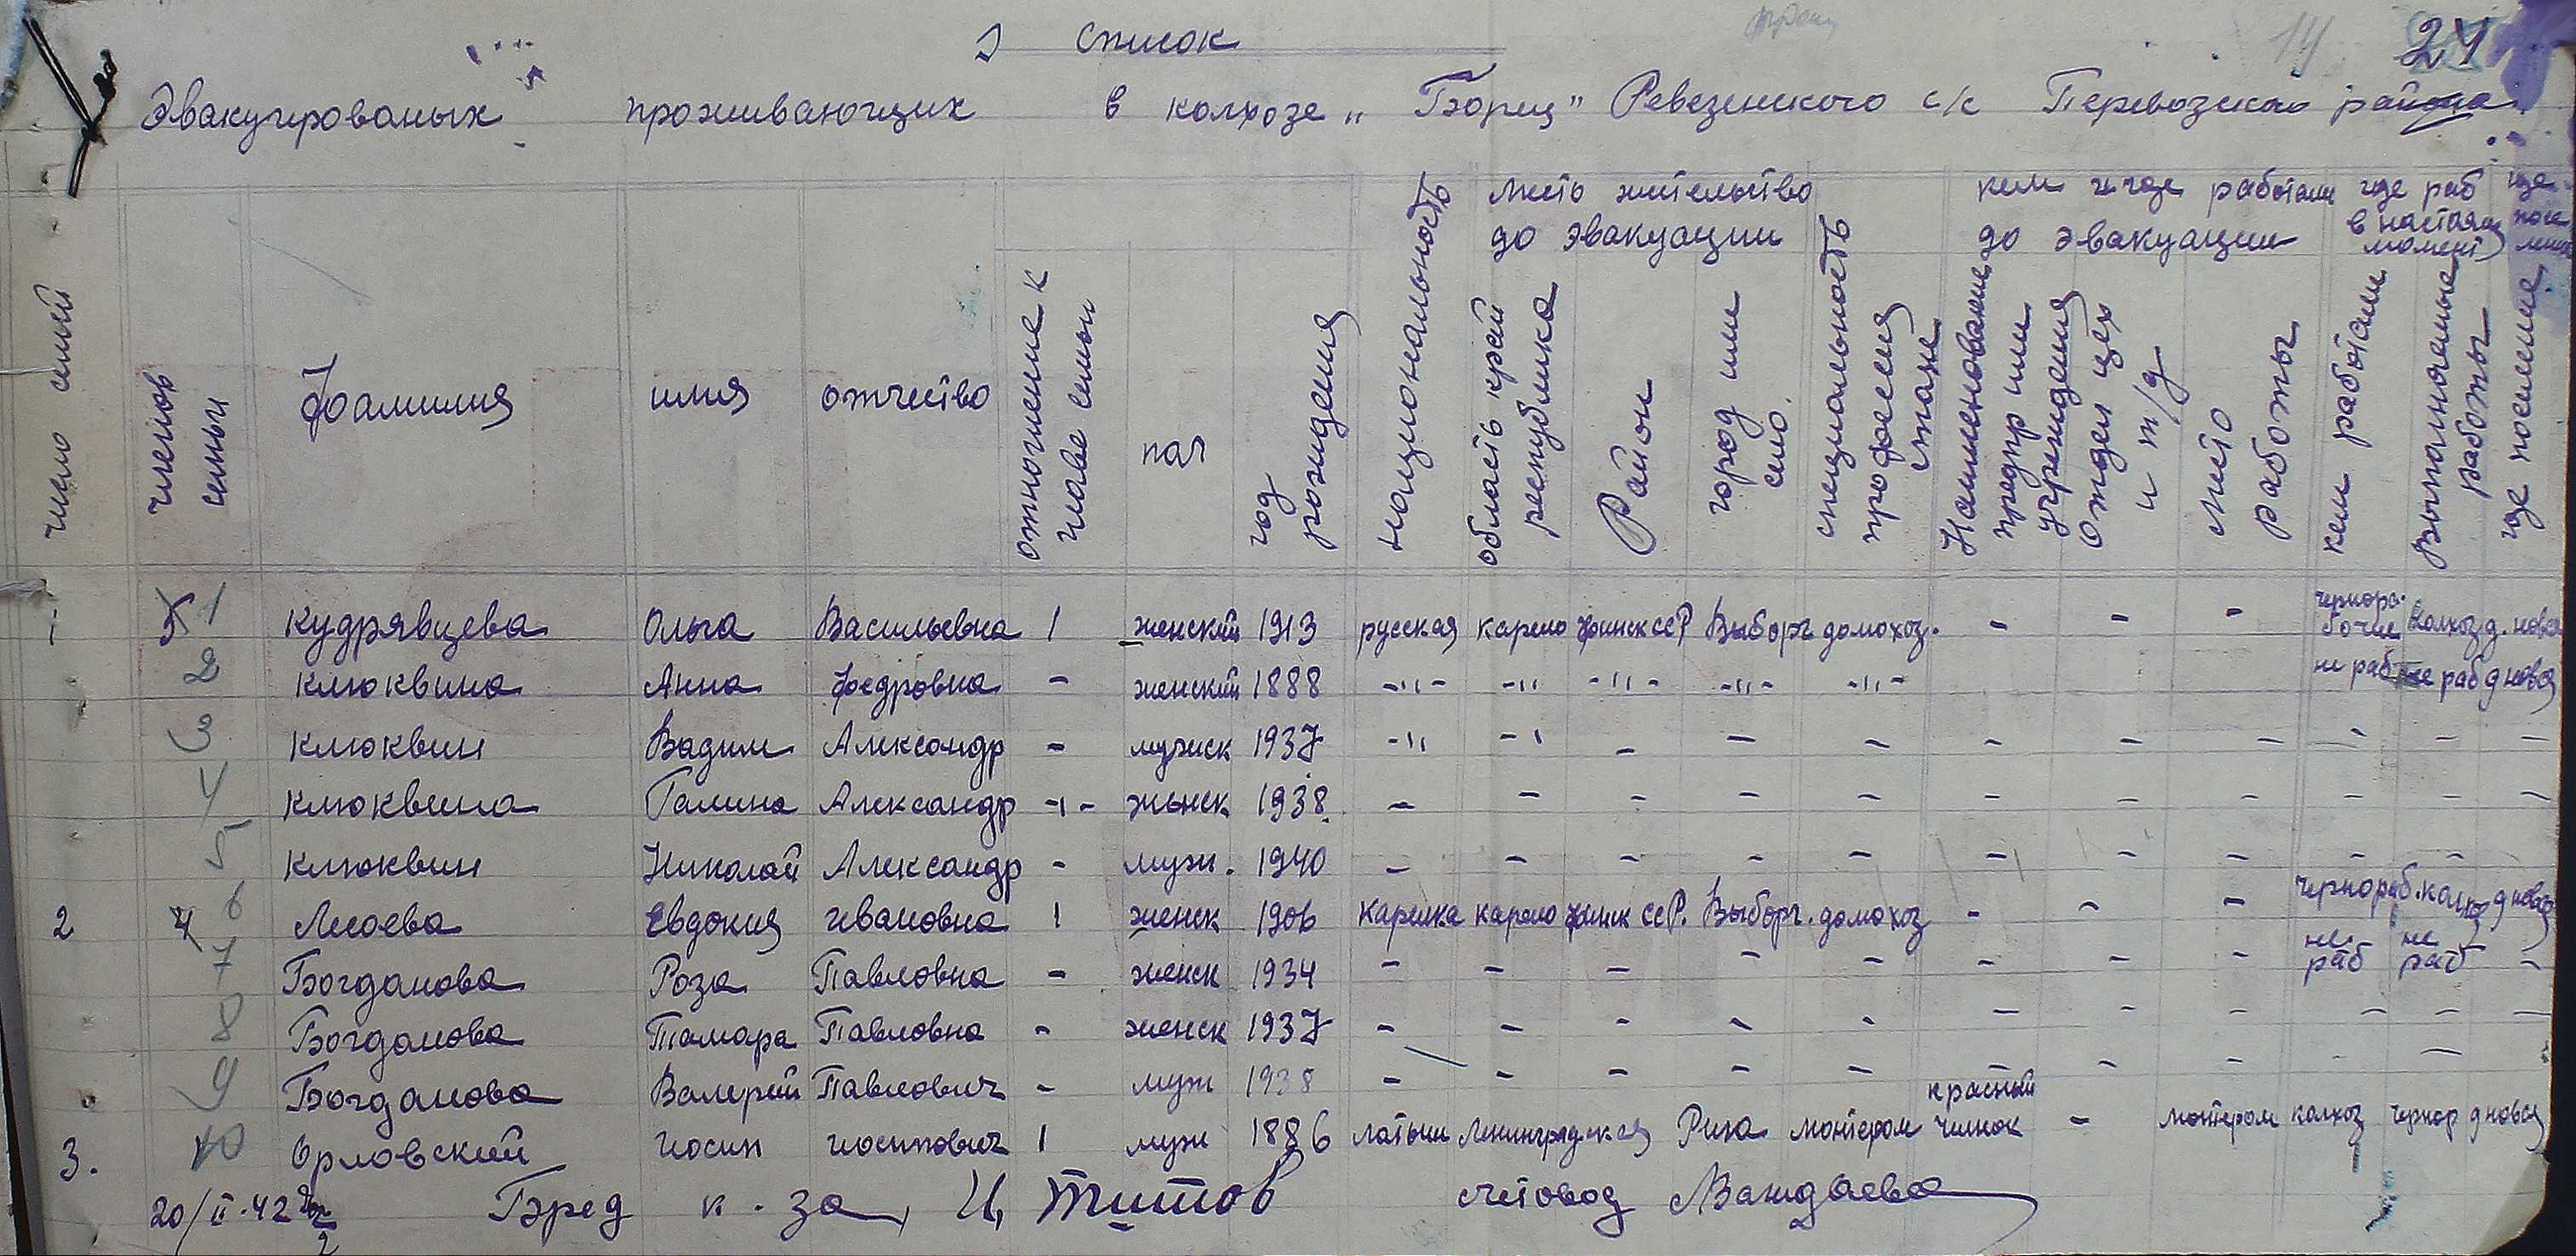 Список
14 24
Эвакуированых проживающих в колхозе „Борец" Ревезенского с/с Перевозского района
число семей
членов семьи
фамилия
имя
отчество
отношение к главе семьи
пол
год рождения
национальность
место жительство до эвакуации
область край республика
Район
город или село.
специальность профессия стаж
кем и где работали до эвакуации
Наименование предпр или учреждения
отдел цех и т/д
место работы
где раб в настоящ момент
кем работали
выполномые работы
где
где поселен
1 5 1 Кудрявцева Ольга Васильевна 1 женский 1913 русская карело финск ССР Выборг домохоз. - - - чернорабочие колхоз д. новоя
2 Клюквина Анна федровна - женский 1888 -"- -"- -"- -"- -"- не раб не раб д новоя
3 Клюквин Вадим Александр - мужск 1937 -"- -"- - - - - - - - - -
4 Клюквина Галина Александр -"- женск 1938 - - - - - - - - - - -
5 Клюквин Николай Александр - муж. 1940 - - - - - - - - - -
2 4 6 Евдокия ивановна 1 женск 1906 карелка карело финск ССР. Выборг. домохоз - - - чернораб. колхоз д новоя
7 Богданова Роза Павловна - женск 1934 - - - - - - - - не раб не раб -
8 Богданова Тамара Павловна - женск 1937 - - - - - - - - - - -
9 Богданова Валерий Павлович - муж 1938 - - - - - - - - - -
3. 10 Орловский иосип иосипович 1 муж 1886 латыш Ленинградская Рига монтером красный челнок - монтером колхоз чернор д новоя
20/II-42 Пред к-за, И, Титов счетовод